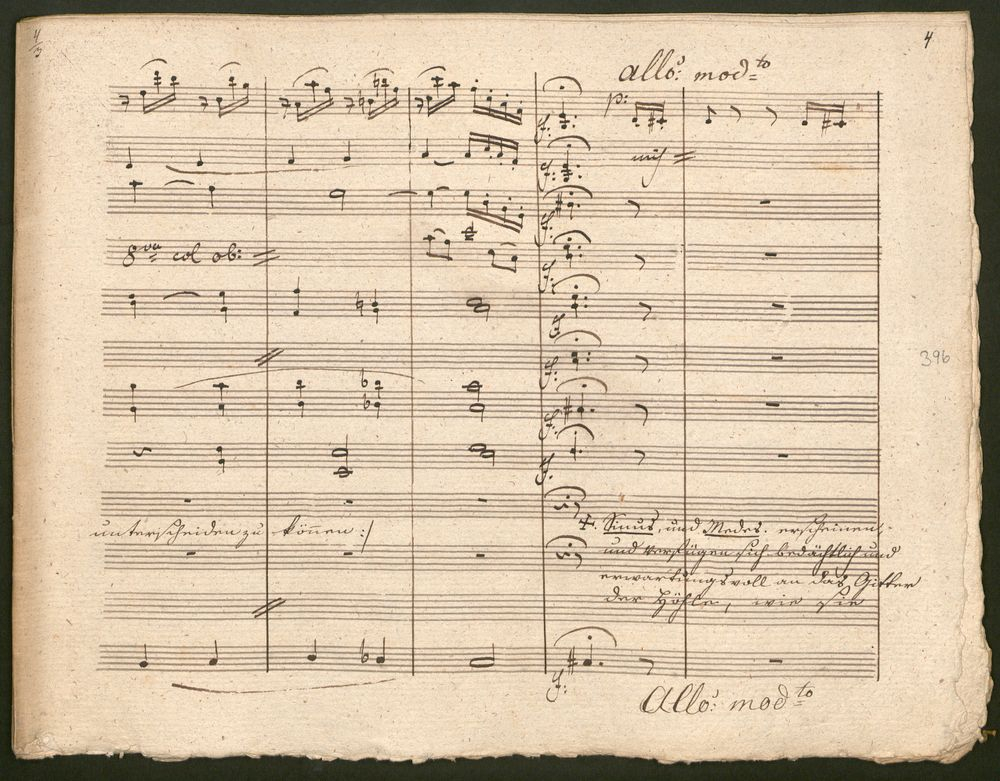 4
3
4
allo: modto
p:
f:
f:
unis
f:
8va col ob:
f:
f:
396
f:
f:
f:
unterscheiden zu können :/
Sinus, und Medes. erscheinen,
und verfügen sich bedächtlich und
erwartungsvoll an das Gitter
der Höhle, wie sie
f:
Allo: modto